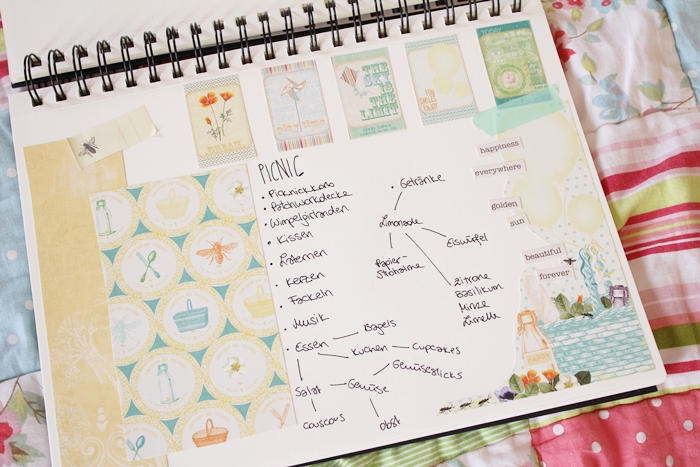 THE
SKY
IS
THE
LIMIT
PICNIC
• Picknickkorb
• Patchworkdecke
• Wimpelgirlanden
• Kissen
• Laternen
• Kerzen
Fackeln
• Musik
• Essen
Bagels
Kuchen
Cupcakes
Gemüsesticks
Salat
Gemüse
couscous
Obst
• Getränke
Limonade
Eiswürfel
Papier-
Strohhalme
Zitrone
Basilikum
Minze
Limette
happiness
everywhere
golden
sun
beautiful
forever